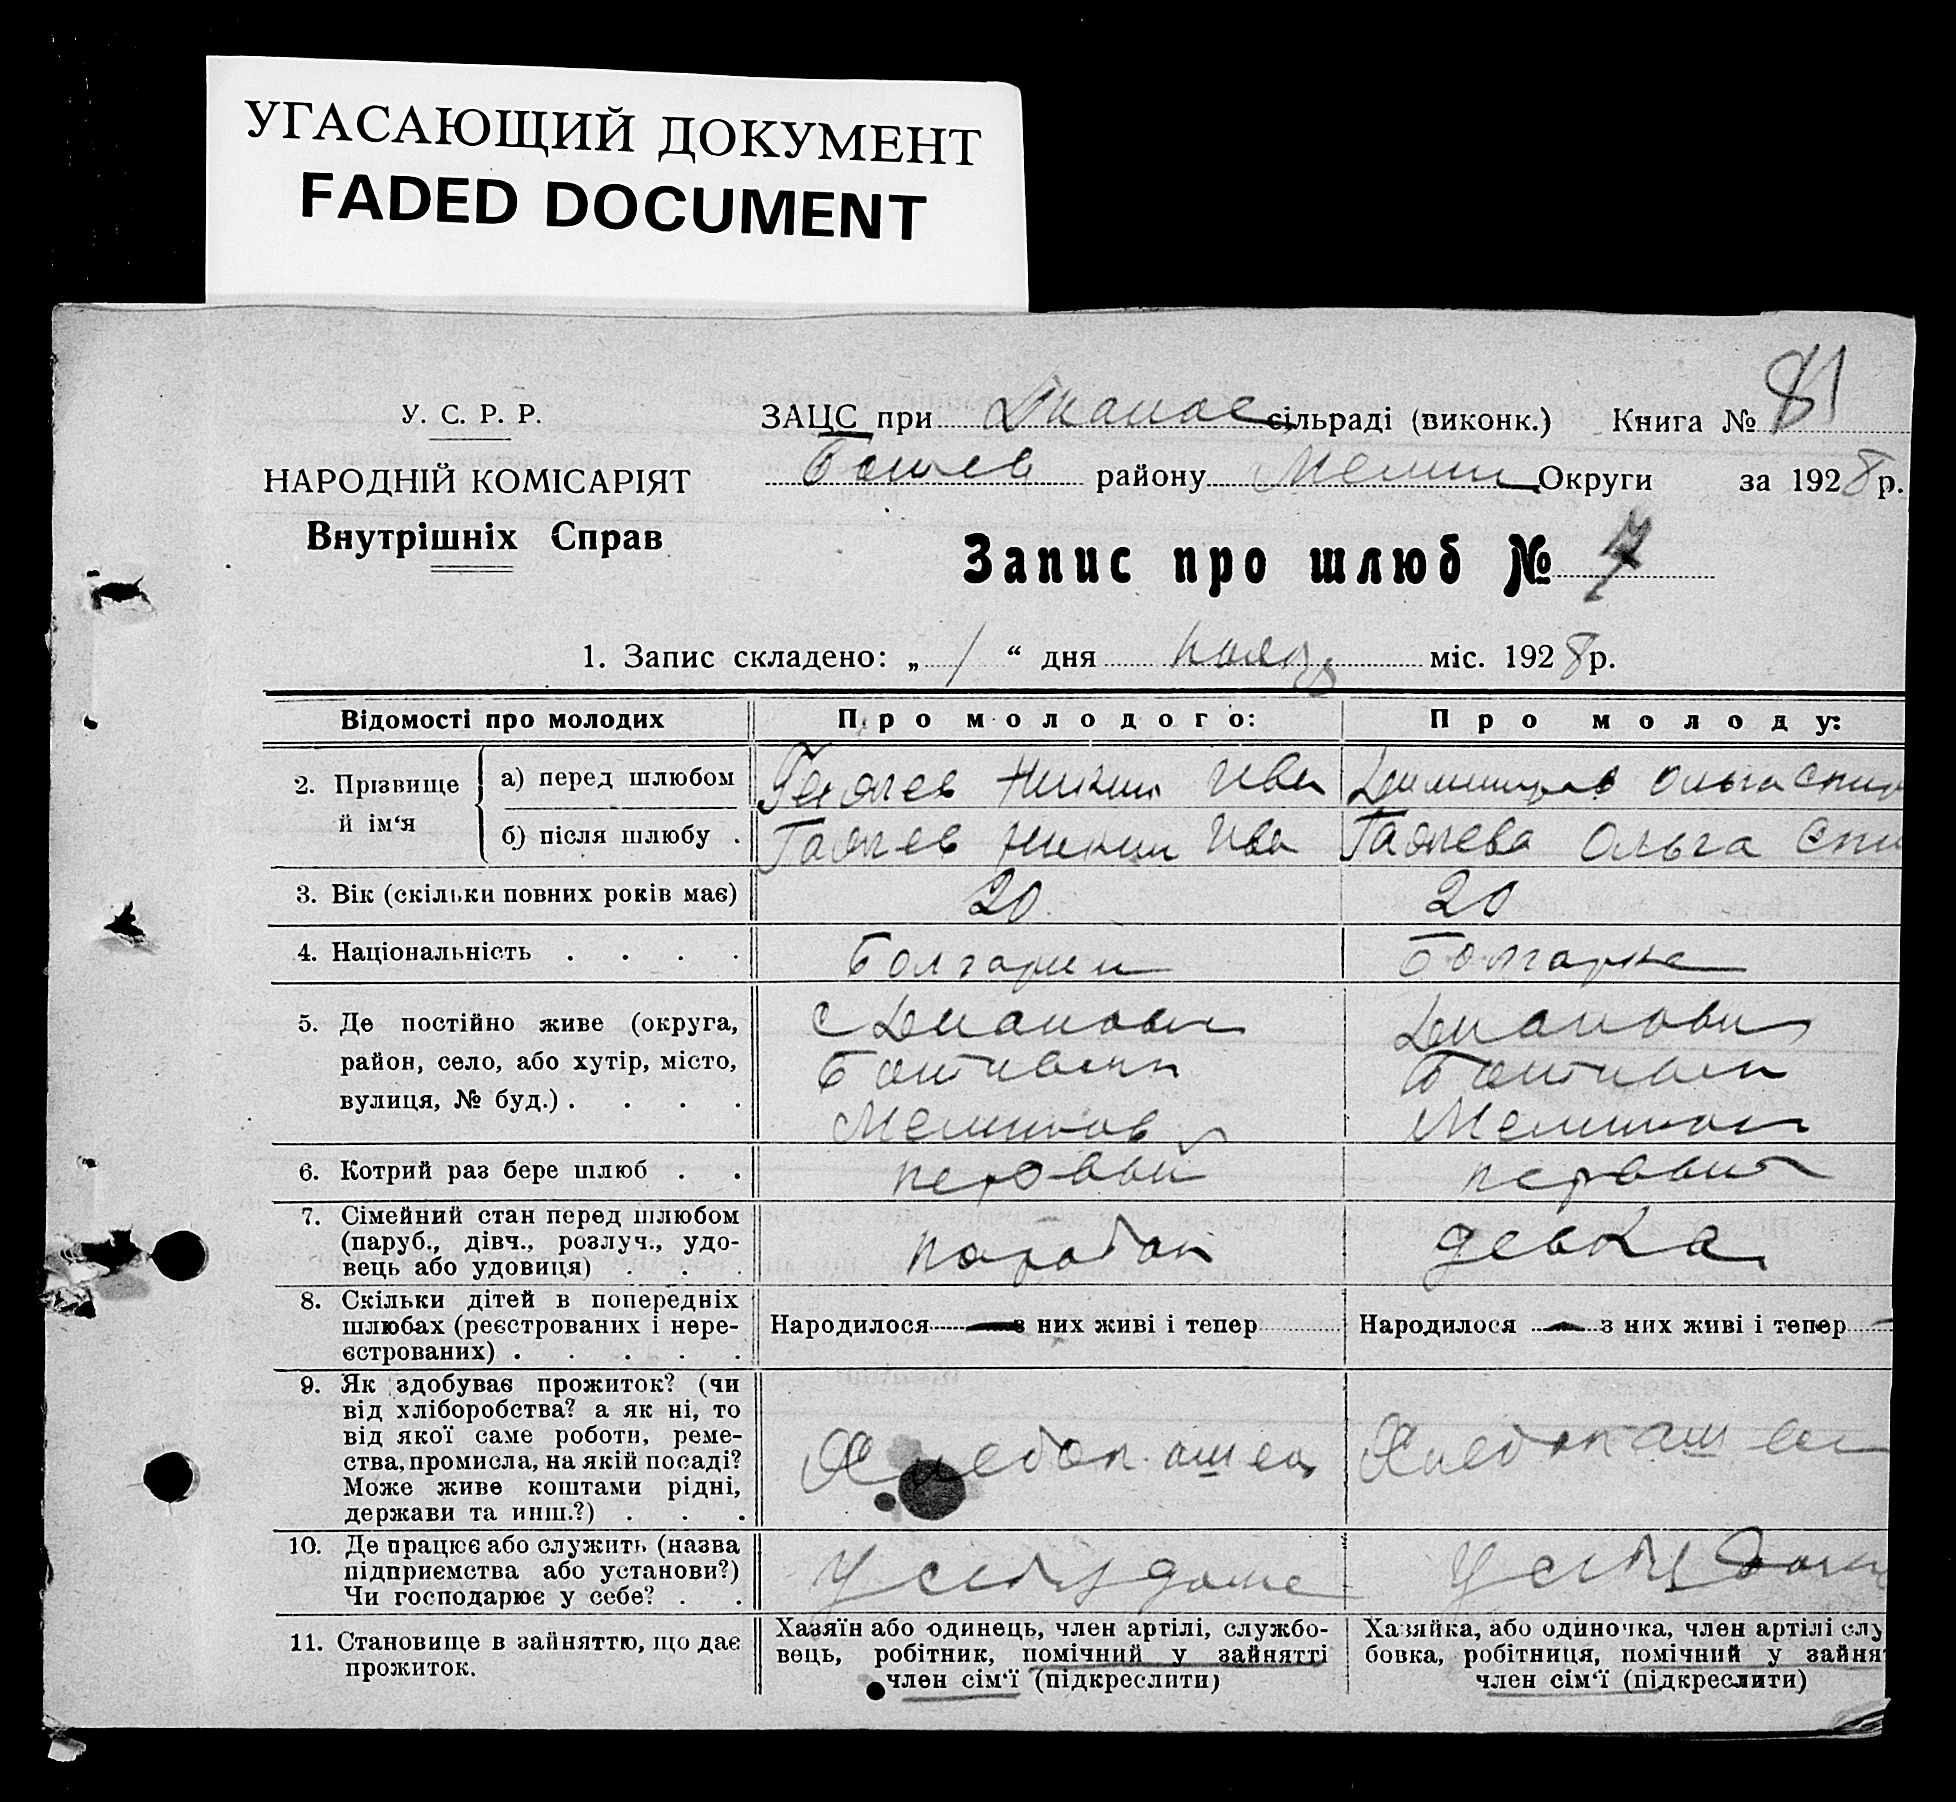 УГАСАЮЩИЙ ДОКУМЕНТ
FADED DOCUMENT
У. С. Р. Р.
НАРОДНІЙ КОМІСАРІЯТ
Внутрішніх Справ
ЗАЦС при сільраді (виконк.) Книга № 81
району Округи за 1928 р.
Запис про шлюб № 7
1. Запис складено: „ 1 “ дня міс. 1928 р.
Відомості про молодих
Про молодого:
Про молоду:
2. Прізвище й ім‘я
а) перед шлюбом
Ива
Ольга
б) після шлюбу .
Ива
Ольга
3. Вік (скільки повних років має)
20
20
4. Національність . . . .
Болгарин
Болгарка
5. Де постійно живе (округа,
район, село, або хутір, місто,
вулиця, № буд.) . . . .
6. Котрий раз бере шлюб . .
первый
первый
7. Сімейний стан перед шлюбом
(паруб., дівч., розлуч., удо-
вець або удовиця) . . .
паробок
девка
8. Скільки дітей в попередніх
шлюбах (реєстрованих і нере-
єстрованих) . . . . .
Народилося — з них живі і тепер
Народилося — з них живі і тепер —
9. Як здобуває прожиток? (чи
від хліборобства? а як ні, то
від якої саме роботи, реме-
ства, промисла, на якій посаді?
Може живе коштами рідні,
держави та инш.?) . . .
10. Де працює або служить (назва
підприємства або установи?)
Чи господарює у себе? . .
У себя дома
У себя дома
11. Становище в зайняттю, що дає
прожиток.
Хазяїн або одинець, член артілі, службо-
вець, робітник, помічний у зайнятті
член сім‘ї (підкреслити)
Хазяйка, або одиночка, член артілі слу
бовка, робітниця, помічний у зайня
член сім‘ї (підкреслити)